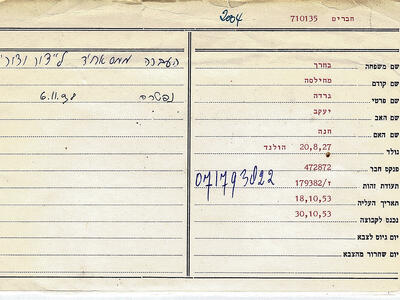 חברים 710135
2004
שם משפחה בחרך
שם קודם מחילסה
שם פרטי גרדה
שם האב יעקב
שם האם חנה
נולד 20,8,27 הולנד
פנקס חבר 472872
תעודת זהות ז/179382
071793822
תאריך העליה 18,10,53
נכנס לקבוצה 30,10,53
יום גיוס לצבא
יום שחרור מהצבא
העברה
נפטרה 6.11.98